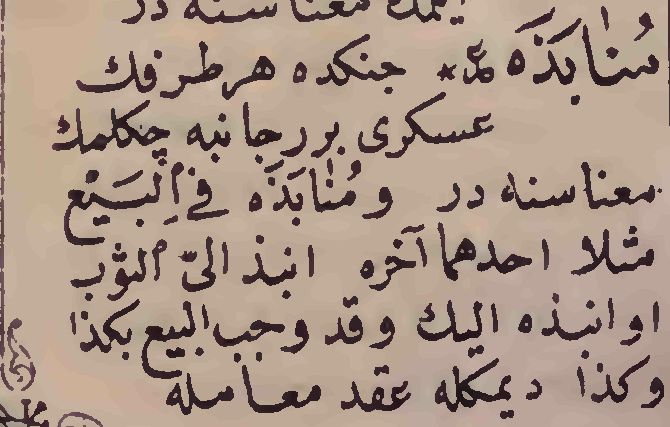 ايمك معناسنه در
مُنٰابَذَه ع م * جنكده هر طرفك
عسكرى برر جانبه چكلمك
معناسنه در و مُنٰابَذَه فِي اَلْبَيْعِ
مثلا احدهما آخره انبذ الىّ الثوب
او انبذه اليك وقد وجب البيع بكذا
وكذا ديمكله عقد معامله